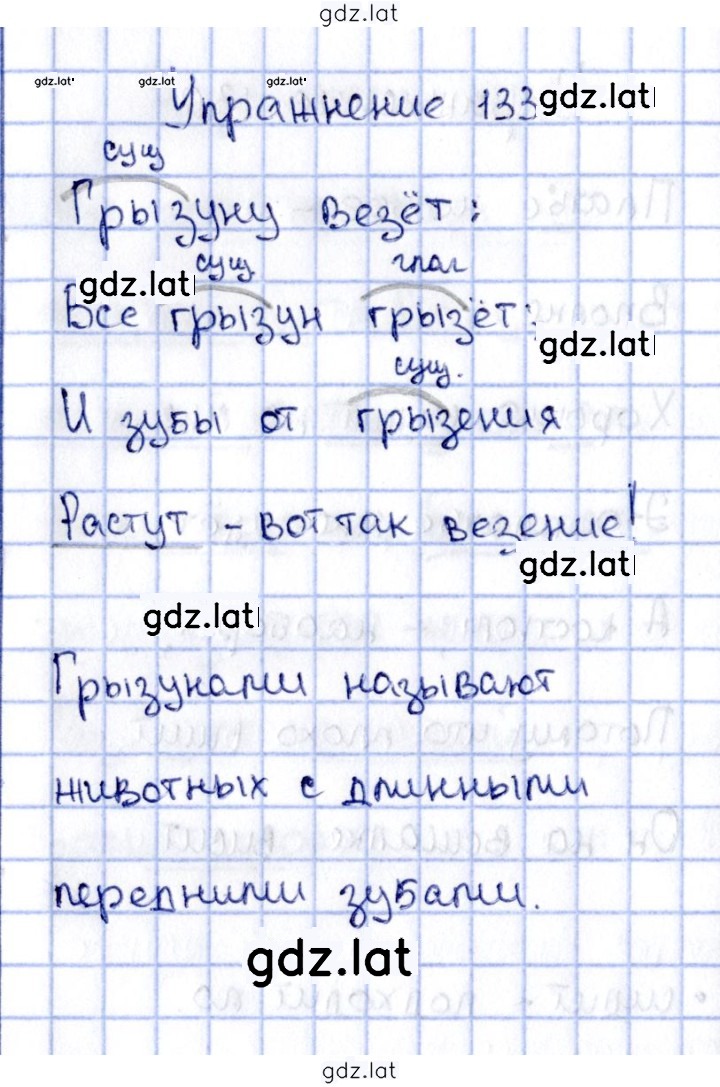 gdz.lat
gdz.lat gdz.lat gdz.lat
Упражнение 133 gdz.lat
сущ
Грызуну везёт:
gdz.lat сущ. глаг
Все грызун грызёт:
gdz.lat
сущ.
И зубы от грызения
Растут - вот так везение!
gdz.lat
gdz.lat
Грызунами называют
животных с длинными
передними зубами.
gdz.lat
gdz.lat